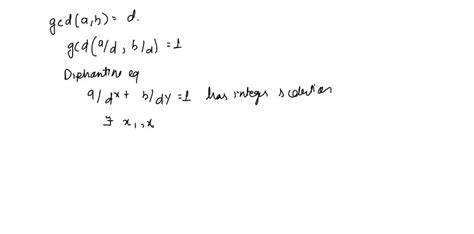 gcd(a,b) = d.
gcd(a/d, b/d) = 1
Diphantine eq
a/d x + b/d y = 1 has integs solution
∃ x₁, x